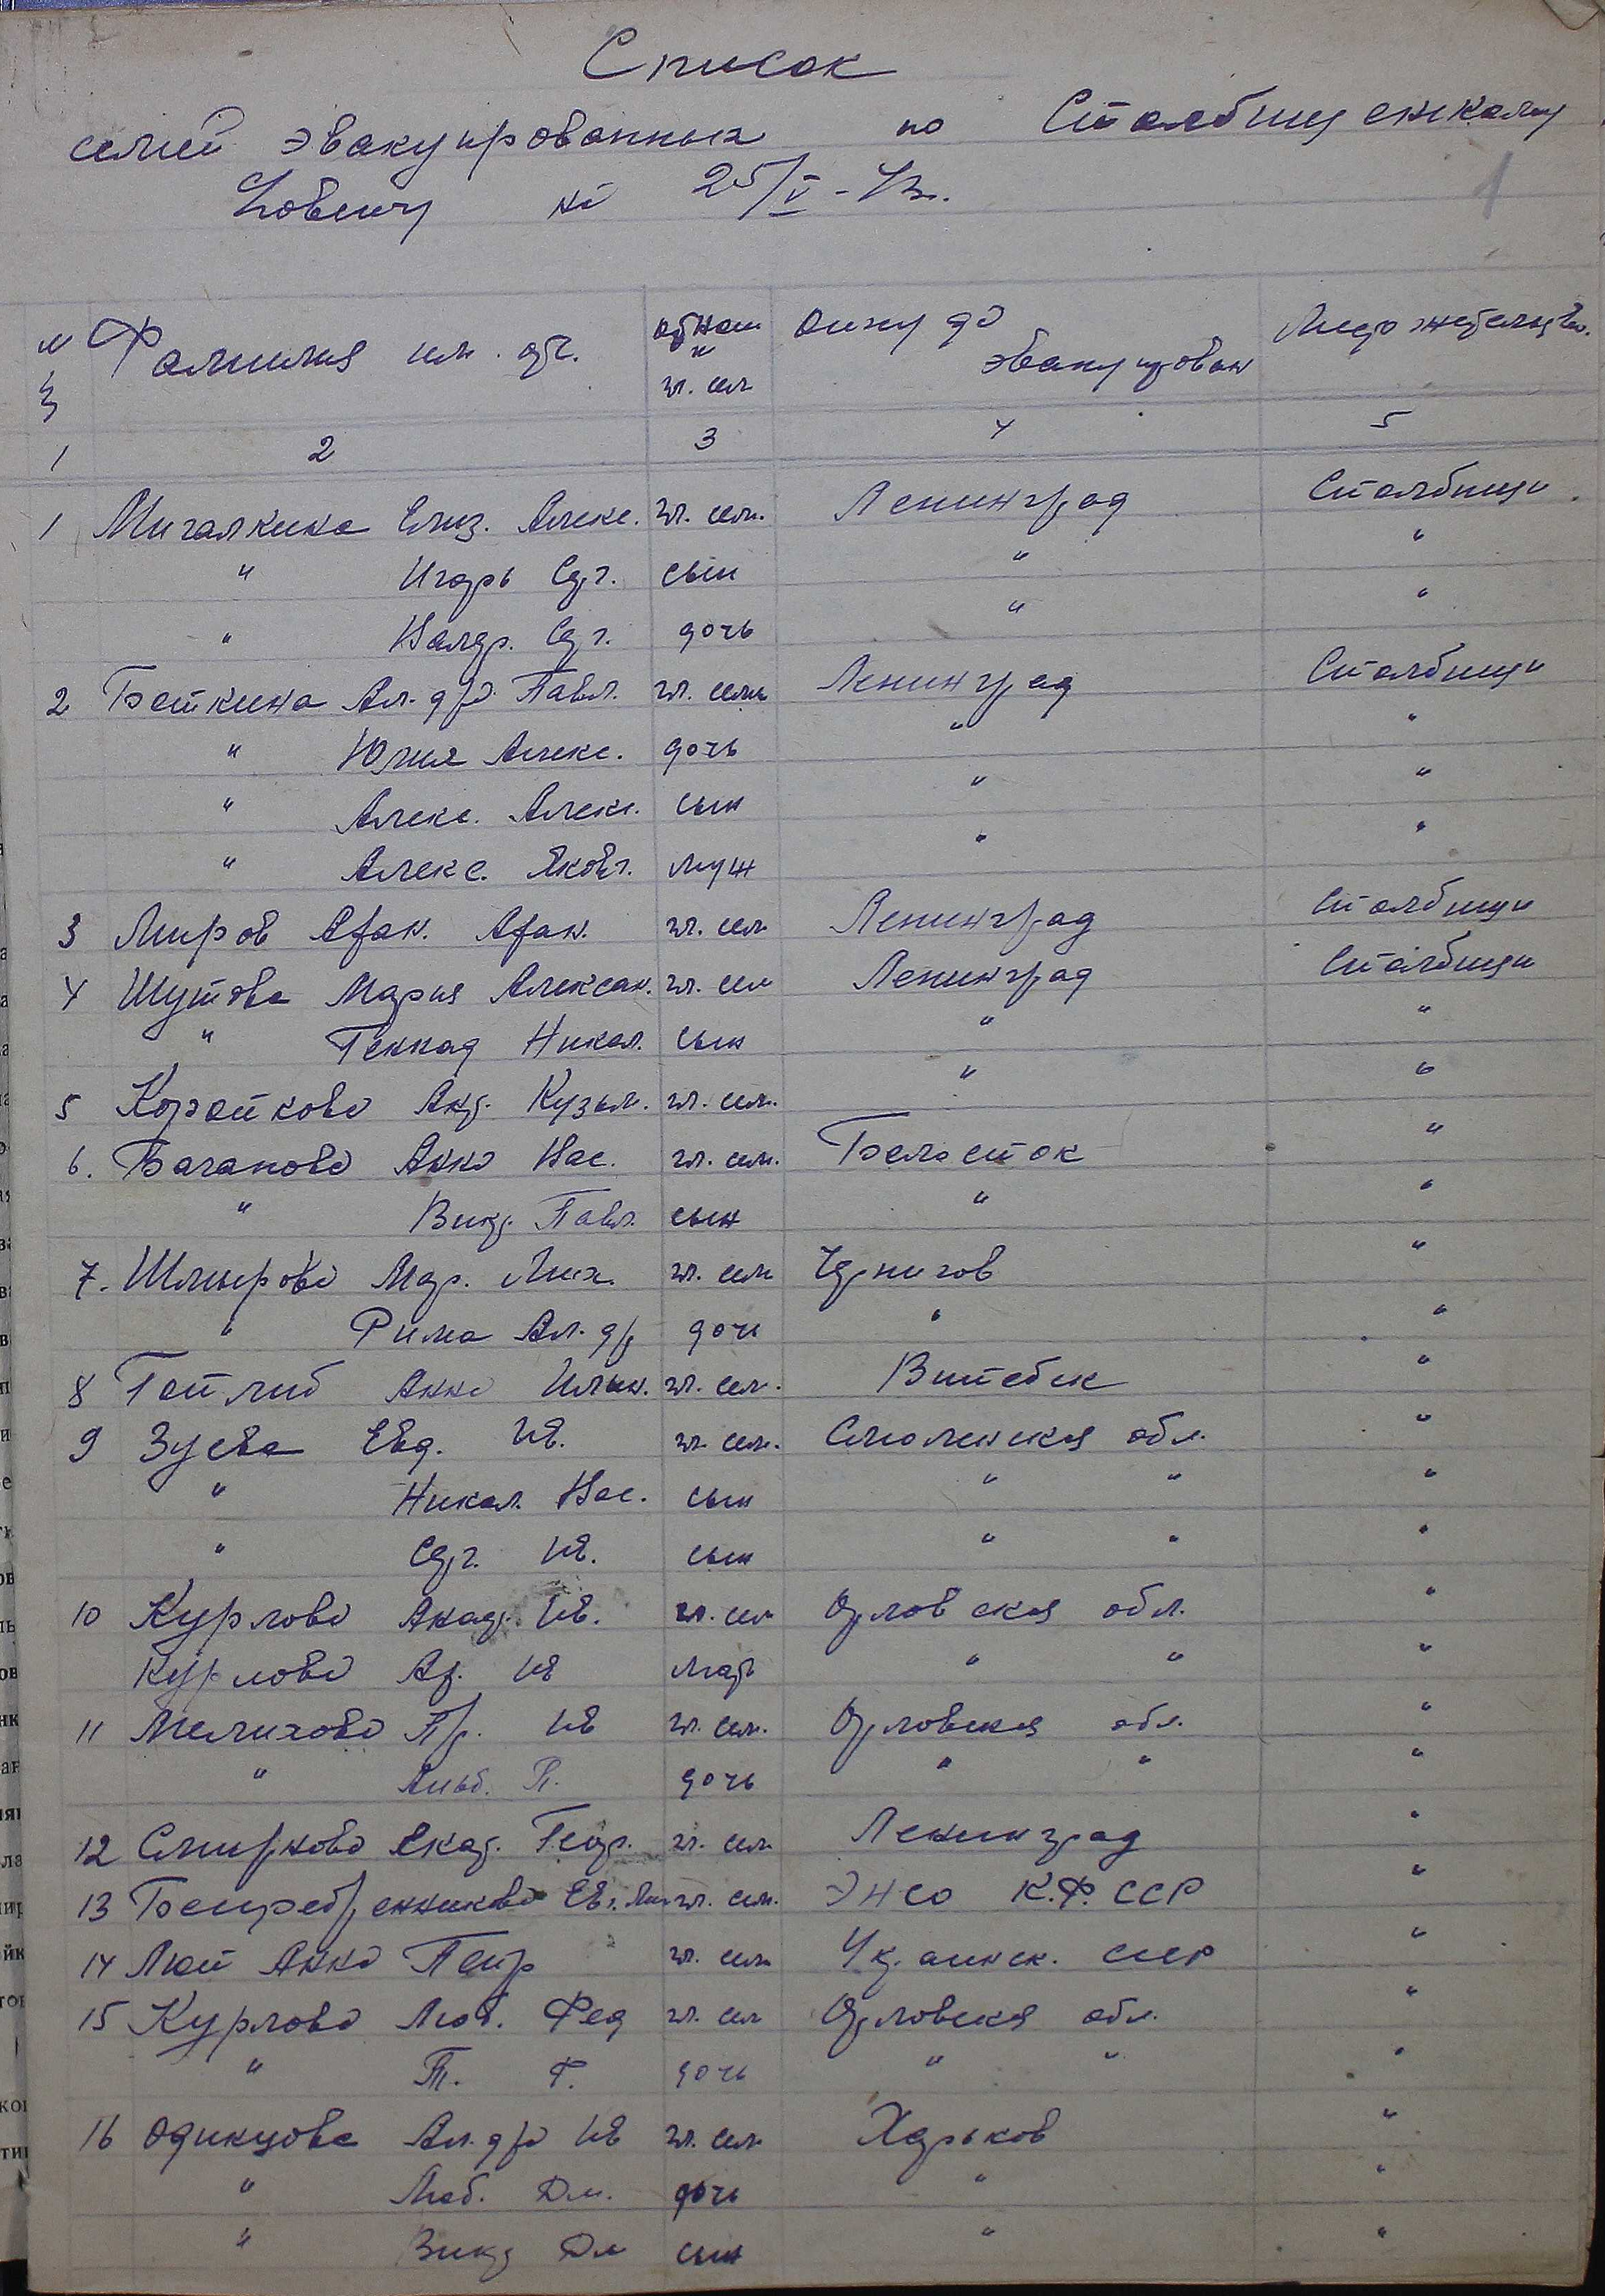 Список
семей эвакуированных по Столбищенскому
Совету на 25/V-43г.
1
№ Фамилия им. отч. отнош к гл. сем откуда эвакуирован Место жительства
1 2 3 4 5
1 Мигалкина Елиз. Алекс. гл. сем. Ленинград Столбищи
" Игорь Серг. сын " "
" Валер. Серг. дочь " "
2 Боткина Ал-дра Павл. гл. семь Ленинград Столбищи
" Юлия Алекс. дочь " "
" Алекс. Алекс. сын " "
" Алекс. Яковл. муж " "
3 Миров Афан. Афан. гл. сем Ленинград Столбищи
4 Шутова Мария Алексан. гл. сем Ленинград Столбищи
" Геннад Никол. сын " "
5 Короткова Екат. Кузьм. гл. сем. " "
6. Баганова Анна Вас. гл. сем. Белосток "
" Викт. Павл. сын " "
7. Шмырова Мар. Мих. гл. сем Чернигов "
" Рима Ал-др дочь " "
8 Готлиб Анна Ильин. гл. сем. Витебск "
9 Зуева Евд. Ив. гл. сем. Смоленская обл. "
" Никол. Вас. сын " " "
" Серг. Ив. сын " " "
10 Курлова Акад. Ив. гл. сем Орловская обл. "
Курлова Ив мать " " "
11 Мелихова Пр. Ив гл. сем. Орловская обл. "
" Альб. П. дочь " " "
12 Смирнова Екат. Геор. гл. сем Ленинград "
13 Ев. Мих гл. сем. Энсо К.Ф. ССР "
14 Лют Анна Петр гл. сем Украинск. ССР "
15 Курлова Люб. Фед гл. сем Орловская обл. "
" Т. Ф. дочь " " "
16 Одинцова Ал-дра Ив гл. сем Харьков "
" Люб. Дм. дочь " "
" Викт Дм сын " "